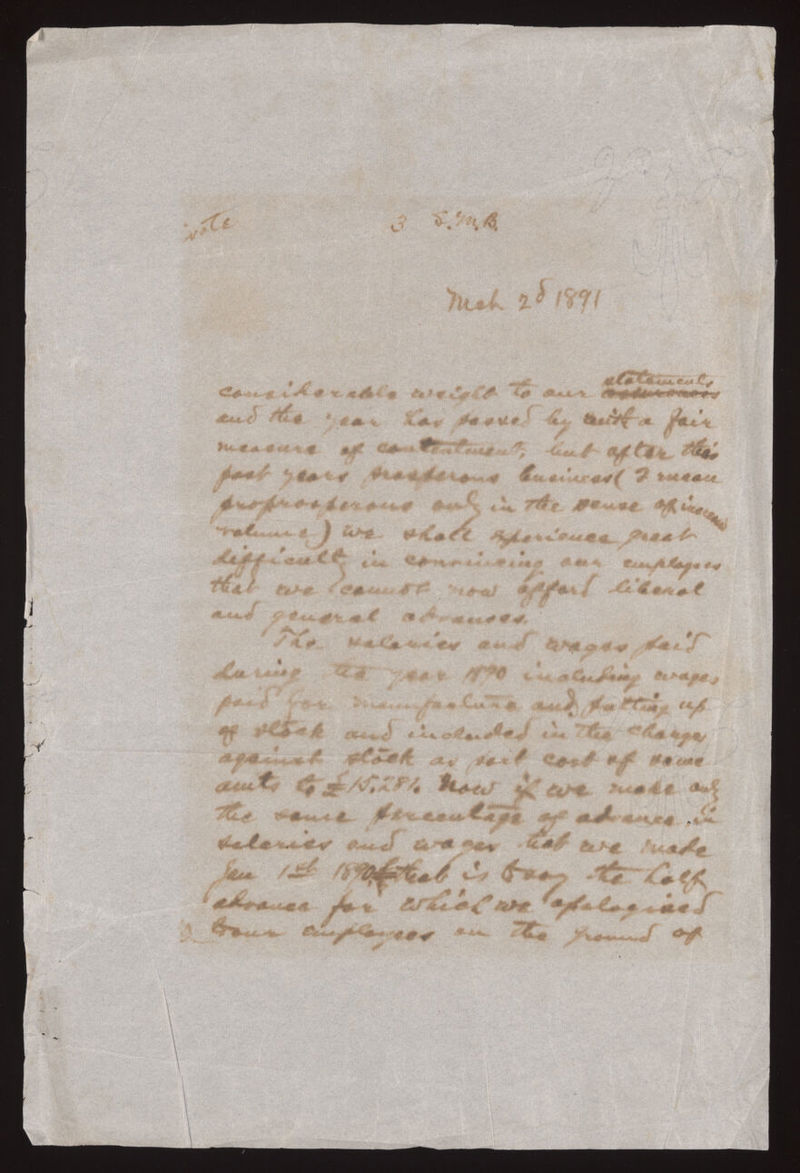 3 S.M.B.
Mch 2d 1891
considerable weight to our statements
and the year has passed by with a fair
measure of contentment, but after this
past years prosperous business ( I mean
proprosperous only in the sense of increased
volume) we shall experience great
difficulty in convincing our employees
that we cannot now afford liberal
and general advances.
The salaries and wages paid
during the year 1890 including wages
paid for manufacture and putting up
of stock and included in the charge
against stock as part cost of same
amts to £15,281. Now if we make only
the same percentage of advance in
salaries and wages that we made
Jan 1st 1890, that is to say the half
advance for which we apologised
to our employees on the ground of